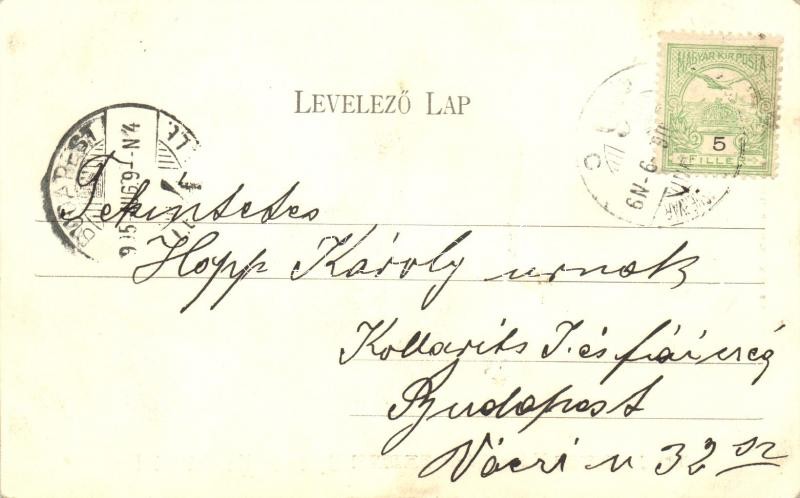 MAGYAR KIR. POSTA
5
FILLÉR
LEVELEZŐ LAP
BUDAPEST
Tekintetes
Hopp Károly urnak
Kollarits J. és fiai cég
Budapest
Váczi u 32 sz